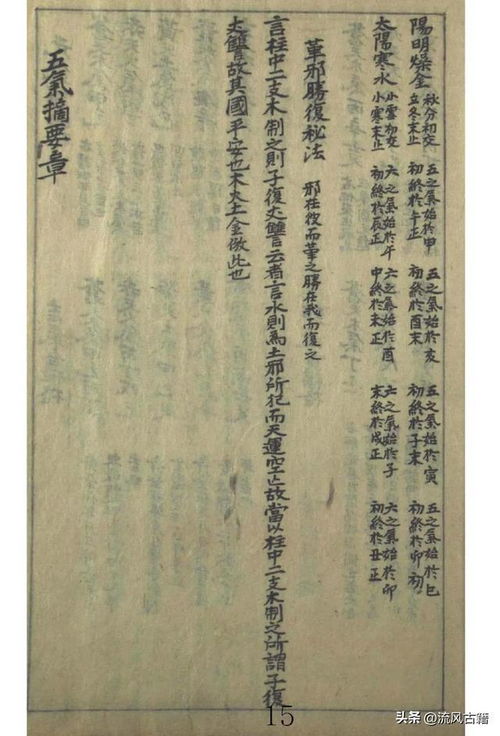 陽明燥金 秋分初交 立冬末止 五之氣始於申 初終於午正 五之氣始於亥 初終於酉末 五之氣始於寅 初終於子末 五之氣始於巳 初終於卯初
太陽寒水 小雪初交 小寒末止 六之氣始於午 初終於辰正 六之氣始於酉 中終於未正 六之氣始於子 末終於戌正 六之氣始於卯 初終於丑正
革邪勝復秘法 邪在彼而革之勝在我而復之
言柱中二支木制之則子復父讐云者言水則為土邪所犯而天運空亡故當以柱中二支木制之所謂子復
父讐故其國平安也木火土金倣此也
五氣摘要章
15
头条 @流风古籍